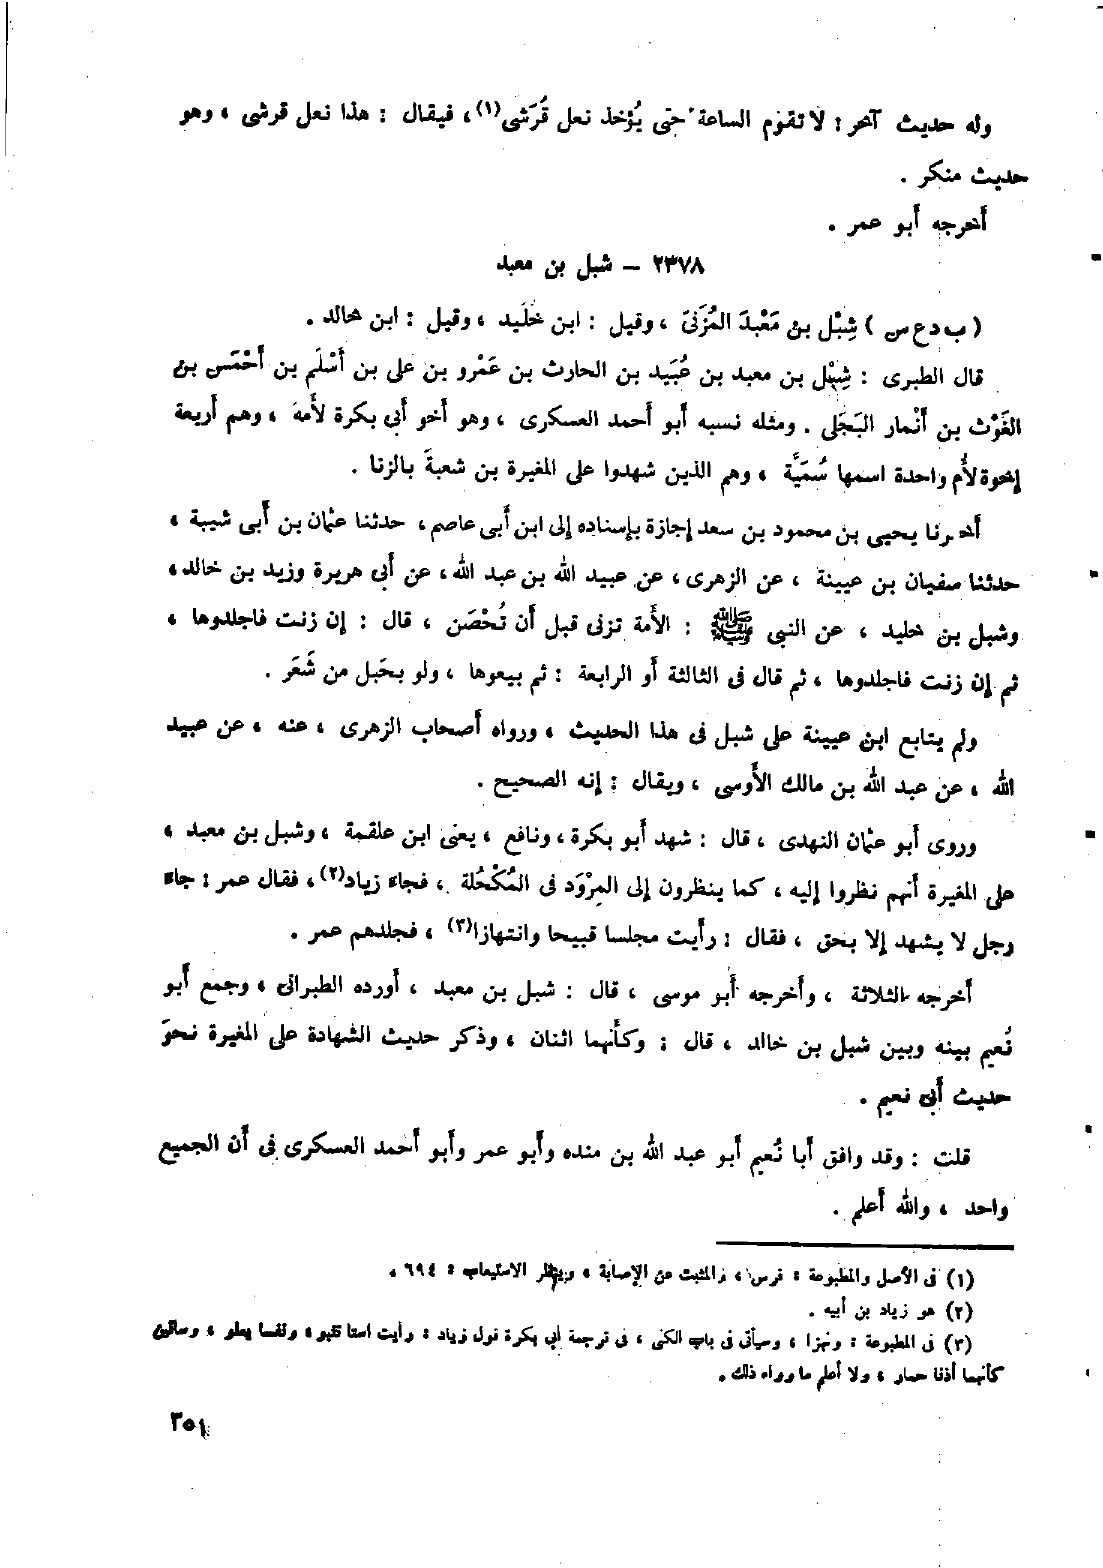 وله حديث آخر : لا تقوم الساعة حتى يُؤخذ نعل قُرَشى(١) ، فيقال : هذا نعل قرشى ، وهو
حديث منكر .
أخرجه أبو عمر .
٢٣٧٨ – شبل بن معبد
( ب د ع س ) شِبْل بن مَعْبدَ المُزَنىّ ، وقيل : ابن خلَيد ، وقيل : ابن خالد .
قال الطبرى : شِبْل بن معبد بن عُبَيد بن الحارث بن عَمْرو بن على بن أَسْلَم بن أَحْمَس بن
الغَوْث بن أَنْمار البَجَلى . ومثله نسبه أبو أحمد العسكرى ، وهو أخو أبى بكرة لأمه ، وهم أربعة
إخوة لأُم واحدة اسمها سُمَيَّة ، وهم الذين شهدوا على المغيرة بن شعبةَ بالزنا .
أخبرنا يحيى بن محمود بن سعد إجازة بإسناده إلى ابن أبى عاصم ، حدثنا عثمان بن أبى شيبة ،
حدثنا سفيان بن عيينة ، عن الزهرى ، عن عبيد الله بن عبد الله ، عن أبى هريرة وزيد بن خالد ،
وشبل بن خليد ، عن النبى ﷺ : الأمة تزنى قبل أن تُحْصَن ، قال : إن زنت فاجلدوها ،
ثم إن زنت فاجلدوها ، ثم قال فى الثالثة أو الرابعة : ثم بيعوها ، ولو بحَبل من شَعَر .
ولم يتابع ابن عيينة على شبل فى هذا الحديث ، ورواه أصحاب الزهرى ، عنه ، عن عبيد
الله ، عن عبد الله بن مالك الأوسى ، ويقال : إنه الصحيح .
وروى أبو عثمان النهدى ، قال : شهد أبو بكرة ، ونافع ، يعنى ابن علقمة ، وشبل بن معبد ،
على المغيرة أنهم نظروا إليه ، كما ينظرون إلى المِرْوَد فى المُكْحُلة ، فجاء زياد(٢) ، فقال عمر : جاء
رجل لا يشهد إلا بحق ، فقال : رأيت مجلسا قبيحا وانتهازا(٣) ، فجلدهم عمر .
أخرجه الثلاثة ، وأخرجه أبو موسى ، قال : شبل بن معبد ، أورده الطبرانى ، وجمع أبو
نُعيم بينه وبين شبل بن خالد ، قال : وكأنهما اثنان ، وذكر حديث الشهادة على المغيرة نحوَ
حديث أبى نعيم .
قلت : وقد وافق أبا نُعيم أبو عبد الله بن منده وأبو عمر وأبو أحمد العسكرى فى أن الجميع
واحد ، والله أعلم .
(١) فى الأصل والمطبوعة : فرس ، والمثبت من الإصابة ، وينظر الاستيعاب : ٦٩٤ .
(٢) هو زياد بن أبيه .
(٣) فى المطبوعة : ونهزا ، وسيأتى فى باب الكنى ، فى ترجمة أبى بكرة قول زياد : رأيت استا تنبو ، ونفسا يعلو ، وساقين
كأنهما أذنا حمار ، ولا أعلم ما وراء ذلك .
٣٥١